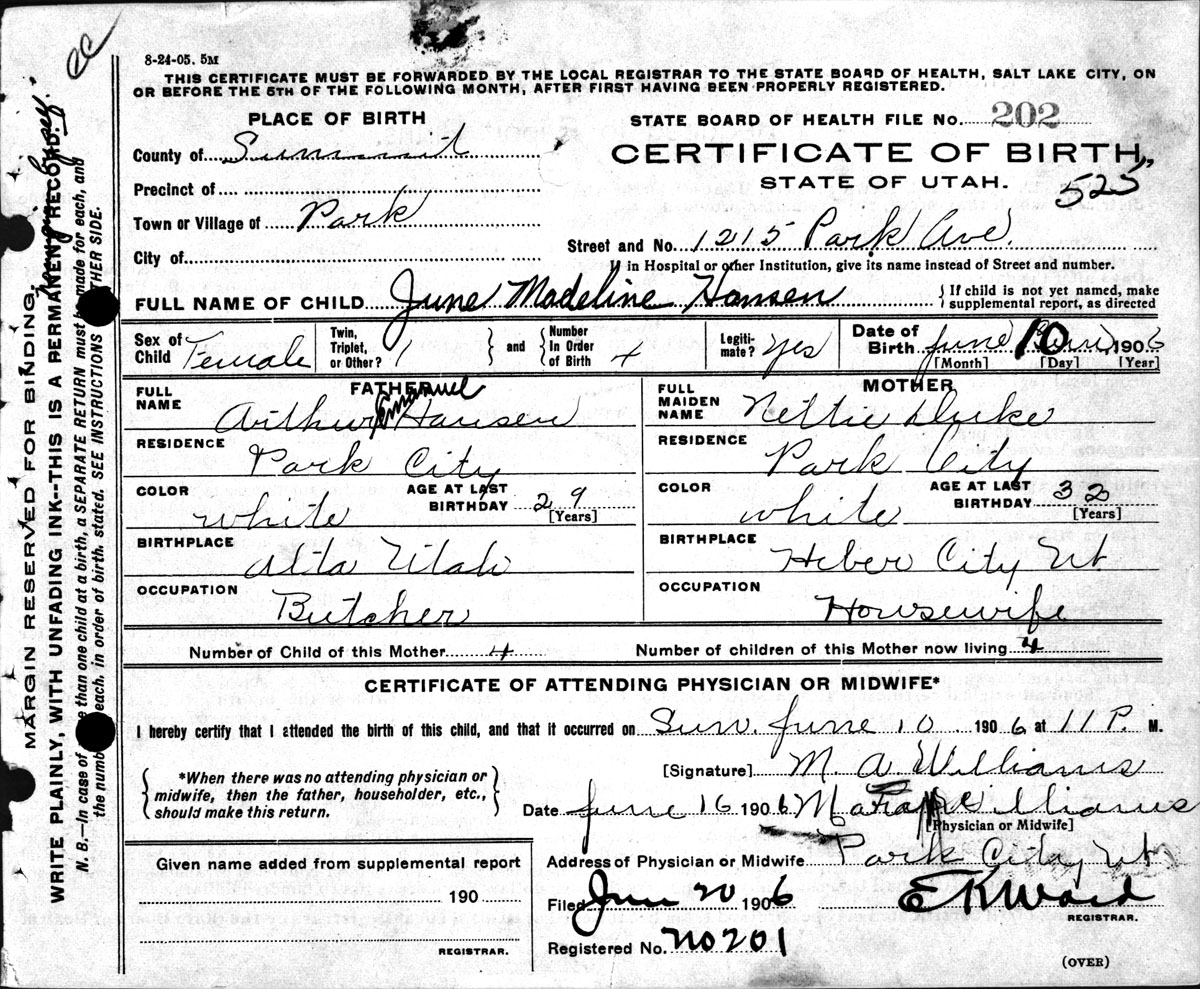 8-24-05. 5M
THIS CERTIFICATE MUST BE FORWARDED BY THE LOCAL REGISTRAR TO THE STATE BOARD OF HEALTH, SALT LAKE CITY, ON
OR BEFORE THE 5TH OF THE FOLLOWING MONTH, AFTER FIRST HAVING BEEN PROPERLY REGISTERED.
PLACE OF BIRTH
STATE BOARD OF HEALTH FILE No. 202
County of Summit
CERTIFICATE OF BIRTH
Precinct of
STATE OF UTAH. 525
Town or Village of Park
Street and No. 1215 Park Ave.
City of
If in Hospital or other Institution, give its name instead of Street and number.
FULL NAME OF CHILD June Madeline Hansen
{If child is not yet named, make
supplemental report, as directed
Sex of Child Female
Twin, Triplet, or Other? 1
} and {
Number In Order of Birth 4
Legiti-mate? Yes
Date of Birth June 10, 1906
[Month] [Day] [Year]
FATHER
FULL NAME Arthur Emanuel Hansen
RESIDENCE Park City
COLOR white
AGE AT LAST BIRTHDAY 29
[Years]
BIRTHPLACE Alta Utah
OCCUPATION Butcher
MOTHER
FULL MAIDEN NAME Nettie Duke
RESIDENCE Park City
COLOR white
AGE AT LAST BIRTHDAY 32
[Years]
BIRTHPLACE Heber City Ut
OCCUPATION Housewife
Number of Child of this Mother 4
Number of children of this Mother now living 4
CERTIFICATE OF ATTENDING PHYSICIAN OR MIDWIFE*
I hereby certify that I attended the birth of this child, and that it occurred on Sun. June 10 1906 at 11 P. M.
{*When there was no attending physician or
midwife, then the father, householder, etc.,
should make this return.}
[Signature] M. A Williams
Date June 16 1906 Williams
[Physician or Midwife]
Address of Physician or Midwife Park City Ut
Given name added from supplemental report
190
REGISTRAR.
Filed Jun 20 1906 E K Ward
REGISTRAR.
Registered No. No 201
(OVER)
MARGIN RESERVED FOR BINDING.
WRITE PLAINLY, WITH UNFADING INK--THIS IS A PERMANENT RECORD.
N. B.--In case of more than one child at a birth, a SEPARATE RETURN must be made for each, and
the number of each, in order of birth, stated. SEE INSTRUCTIONS ON OTHER SIDE.